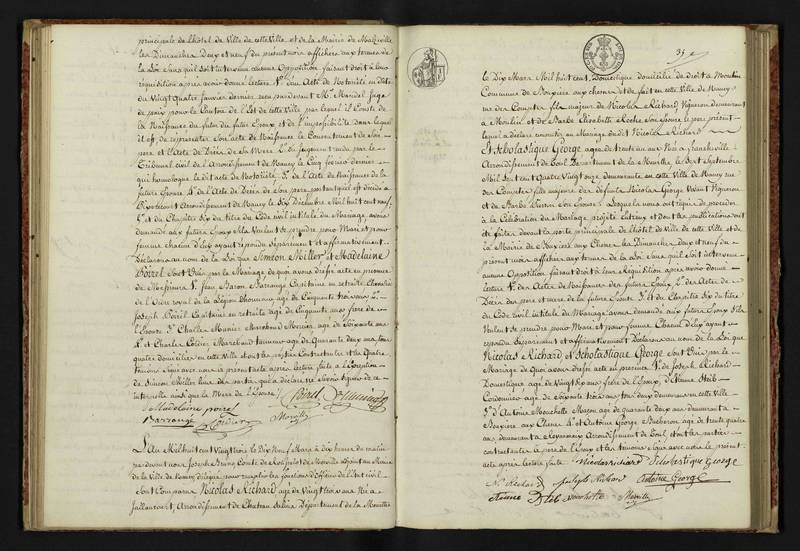 principale de l'hôtel de Ville de cette Ville et de la Mairie de
les Dimanches Deux et neuf du présent mois affichées aux termes de
la Loi sans qu'il soit intervenu aucune Opposition faisant droit à leur
réquisition après avoir donné Lecture 1° d'un Acte de Notoriété en date
du Vingt Quatre Janvier dernier reçu par devant Mr. Mandel Juge
de paix pour le Canton de l'Est de cette Ville par lequel il Conste de
la Naissance du futur Epoux et de l'impossibilité dans laquelle
il est de représenter son acte de Naissance le Consentement de Son
père et l'Acte de Décès de sa Mère 2° du jugement rendu par le
Tribunal civil de l'Arrondissement de Nancy le Cinq février dernier
qui homologue le dit acte de Notoriété 3° de l'Acte de Naissance de la
future Epouse 4° de l'Acte de Décès de Son père portant qu'il est décédé à
Arrondissement de Nancy le Dix Décembre Mil huit cent neuf,
5° et du Chapitre Six du titre du Code civil intitulé du Mariage, avons
demandé aux futurs Epoux s'ils Veulent se prendre pour Mari et pour
femme chacun d'eux ayant répondu Séparément et affirmativement
Déclarons au nom de la Loi que Siméon Miller et Madelaine
Poirel sont Unis par le Mariage de quoi avons dressé acte en présence
de Messieurs 1° Jean Baron Barrange Capitaine en retraite Chevalier
de l'Ordre royal de la Légion d'honneur agé de Cinquante trois ans 2°
Joseph Poirel Capitaine en retraite agé de Cinquante ans frère de
l'Epouse 3° Charles Mounier Marchand Mercier agé de Soixante ans
4° et Charles Cordier Marchand tanneur agé de Quarante deux ans tous
quatre domiciliés en cette Ville et ont les parties Contractantes et les Quatre
témoins Signé avec nous le présent acte après lecture faite à l'Exception
de Siméon Miller l'une des partie qui a déclaré ne Savoir Signer de ce
interpellé ainsi que la Mère de l'Epouse
Madelaine poirel Poirel
Barrange Cordier
L'An Mil huit cent Vingt trois le Dix Neuf Mars à dix heures du matin
par devant nous Joseph
de la Ville de Nancy délégué pour remplir les fonctions d'Officier de l'Etat civil
Sont Comparus Nicolas Richard agé de Vingt trois ans Né à
Jallaucourt, Arrondissement de Chateau Salins Département de la Meurthe
35
le Dix Mars Mil huit cent, Domestique domicilié de Droit à Moulin
Commune de Bouxières aux chenes et de fait en cette Ville de Nancy
rue des Comptes fils majeur de Nicolas Richard Vigneron demeurant
à Moulin et de Barbe Elisabeth Roche Son Epouse, le père présent
lequel a déclaré consentir au Mariage du dit Nicolas Richard
Et Scholastique George agée de trente un ans Née à francheville
Arrondissement de Toul Département de la Meurthe, le Sept Septembre
Mil Sept cent Quatre Vingt onze demeurante en cette Ville de Nancy rue
des Comptes fille majeure des défunts Nicolas George Vivant Vigneron
et de Barbe Pierron Son Epouse. Lesquels nous ont requis de procéder
à la Célébration du Mariage projeté entre eux et dont les publications ont
été faites devant la porte principale de l'hôtel de Ville de cette Ville et de
la Mairie de Bouxières aux Chenes les Dimanches deux et neuf du
présent mois affichées aux termes de la Loi sans qu'il soit intervenu
aucune Opposition faisant droit à leur Réquisition après avoir donné
lecture 1° des Actes de Naissance des futurs Epoux, 2° des Actes de
Décès des père et mère de la future Epouse 3° et du Chapitre Six du titre
du Code civil intitulé du Mariage avons demandé aux futurs Epoux S'ils
Veulent se prendre pour Mari et pour femme Chacun d'eux ayant
répondu Séparément et affirmativement Déclarons au nom de la Loi que
Nicolas Richard et Scholastique George sont Unis par le
Mariage de Quoi avons dressé acte en présence 1° de Joseph Richard
Domestique agé de Vingt six ans frère de l'Epoux, 2° d'Etienne
Cordonnier agé de Soixante trois ans tous deux demeurans en cette Ville
3° d'Antoine Mouchette Maçon agé de quarante deux ans demeurant à
Bouxières aux Chenes 4° et Antoine George Bucheron agé de trente quatre
ans demeurant à Arrondissement de Toul, et ont les parties
contractantes le père de l'Epoux et les témoins Signé avec nous le présent
acte après lecture faite Nicolas richard Scholastique George
N. Richard Joseph Richard Antoine George
Etienne mouchette